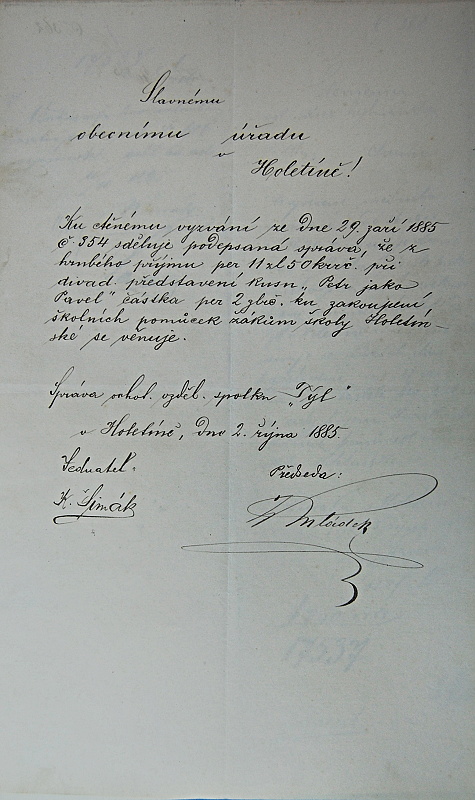 Slavnému
obecnímu úřadu
v
Holetíně!
Ku ctěnému vyzvání ze dne 29. září 1885
č 354 sděluje podepsaná správa, že z
hrubého příjmu per 11 zl 50 krč. při
divad. představení kusu „Petr jako
Pavel" částka per 2 zl rč. ku zakoupení
školních pomůcek žákům školy Holetín-
ské se věnuje.
Správa ochot. vzděl. spolku „Tyl"
v Holetíně, dne 2. října 1885.
Jednatel: Předseda:
K. Šimák Mládek